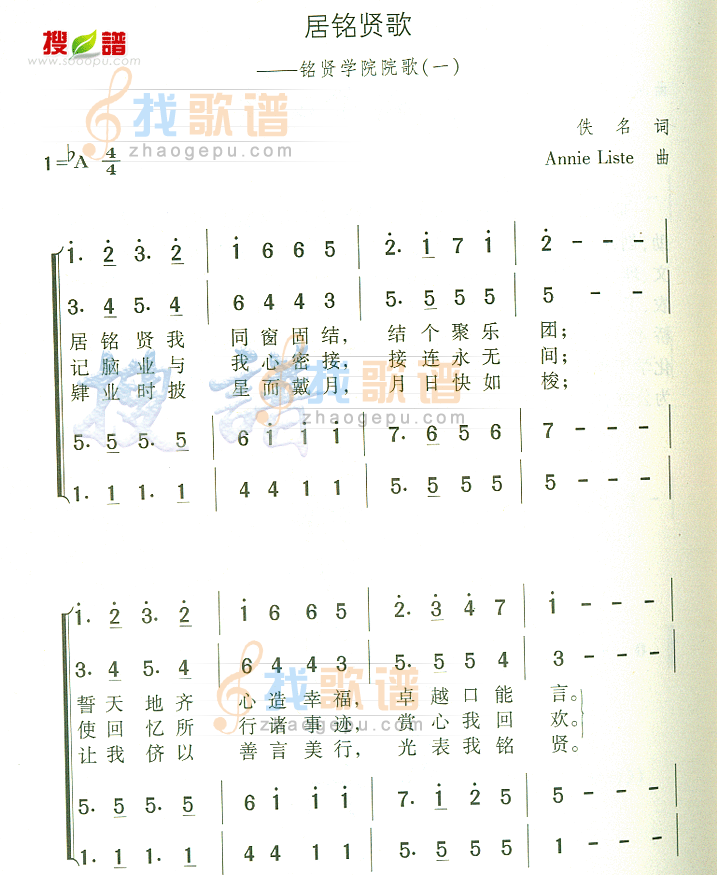 居铭贤歌
搜谱
www.sooopu.com
——铭贤学院院歌(一)
找歌谱
zhaogepu.com
佚名 词
1=♭A 4/4
Annie Liste 曲
1̇. 2̇ 3̇. 2̇ | 1̇ 6 6 5 | 2̇. 1̇ 7 1̇ | 2̇ - - - |
3. 4 5. 4 | 6 4 4 3 | 5. 5 5 5 | 5 - - - |
居铭贤我 同窗固结, 结个聚乐 团;
记脑业与 我心密接, 接连永无 间;
肄业时披 星而戴月, 月日快如 梭;
搜谱
找歌谱
zhaogepu.com
5. 5 5. 5 | 6 1̇ 1̇ 1̇ | 7. 6 5 6 | 7 - - - |
1. 1 1. 1 | 4 4 1 1 | 5. 5 5 5 | 5 - - - |
1̇. 2̇ 3̇. 2̇ | 1̇ 6 6 5 | 2̇. 3̇ 4̇ 7 | 1̇ - - - |
3. 4 5. 4 | 6 4 4 3 | 5. 5 5 4 | 3 - - - |
誓天地齐 心造幸福, 卓越口能 言。
使回忆所 行诸事迹, 赏心我回 欢。
让我侪以 善言美行, 光表我铭 贤。
找歌谱
zhaogepu.com
5. 5 5. 5 | 6 1̇ 1̇ 1̇ | 7. 1̇ 2̇ 5 | 5 - - - |
1. 1 1. 1 | 4 4 1 1 | 5. 5 5 5 | 1 - - - |